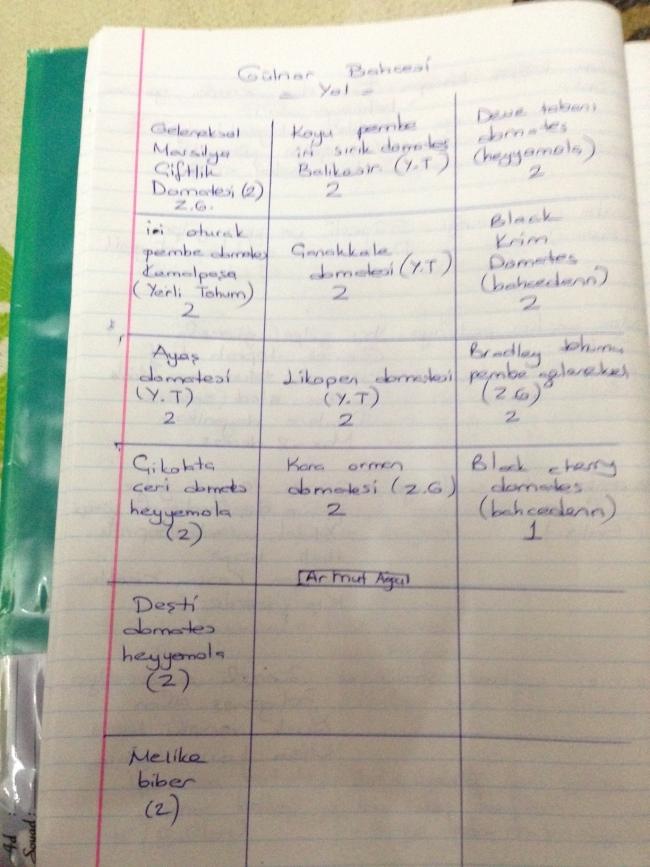 Gülnar Bahcesi
= Yol =
Geleneksel
Marsilya
Çiftlik
Domatesi (2)
Z.G.
Koyu pembe
iri sırık domates
Balıkesir (Y.T)
2
Deve tabanı
domates
(heyyamola)
2
iri oturak
pembe domates
Kemalpaşa
(Yerli Tohum)
2
Çanakkale
domatesi (Y.T)
2
Black
Krim
Domates
(bahcedenn)
2
Ayaş
domatesi
(Y.T)
2
Likopen domatesi
(Y.T)
2
Bradley tohumu
pembe
(Z.G)
2
Çikolata
ceri domates
heyyemola
(2)
Kara orman
domatesi (Z.G)
2
Black cherry
domates
(bahcedenn)
1
Armut Ağacı
Deşti
domates
heyyemola
(2)
Melike
biber
(2)
Ad
Soyad: